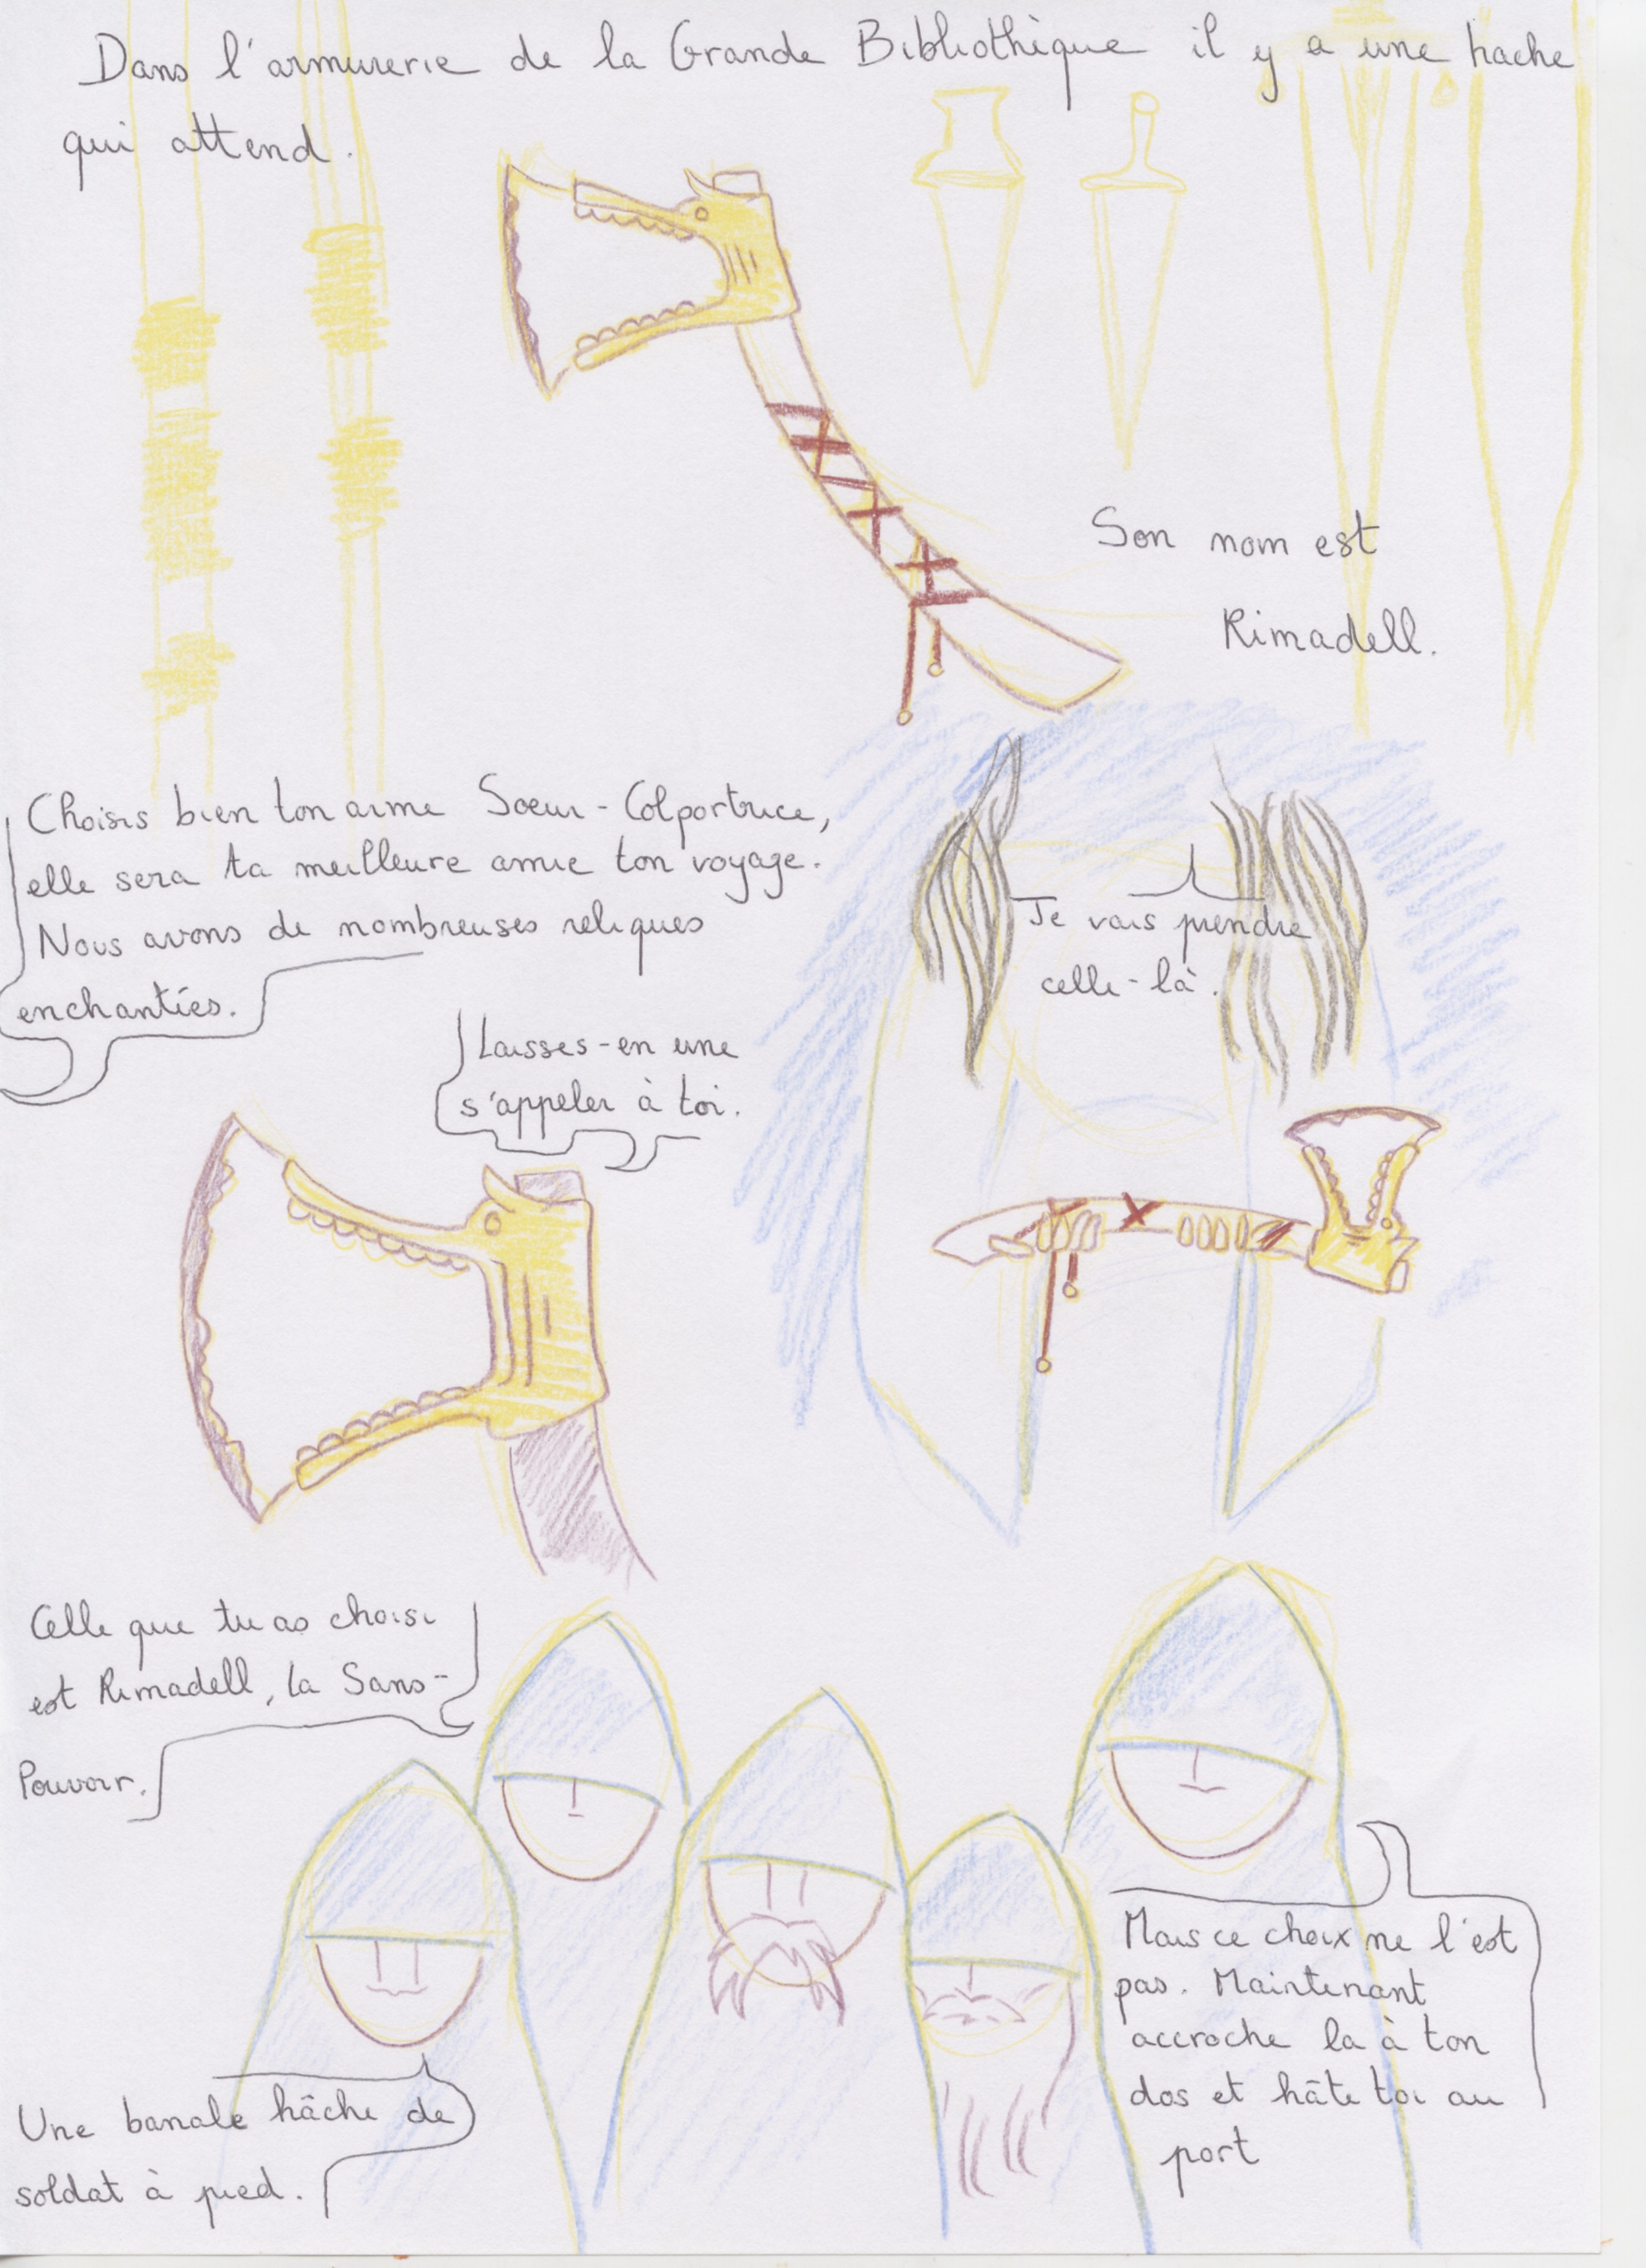 Dans l'armurerie de la Grande Bibliothèque il y a une hache
qui attend.
Son nom est
Rimadell.
Choisis bien ton arme Soeur-Colportrice,
elle sera ta meilleure amie ton voyage.
Nous avons de nombreuses reliques
enchantées.
Laisses-en une
s'appeler à toi.
Je vais prendre
celle-là.
Celle que tu as choisi
est Rimadell, la Sans-
Pouvoir.
Une banale hâche de
soldat à pied.
Mais ce choix ne l'est
pas. Maintenant
accroche la à ton
dos et hâte toi au
port